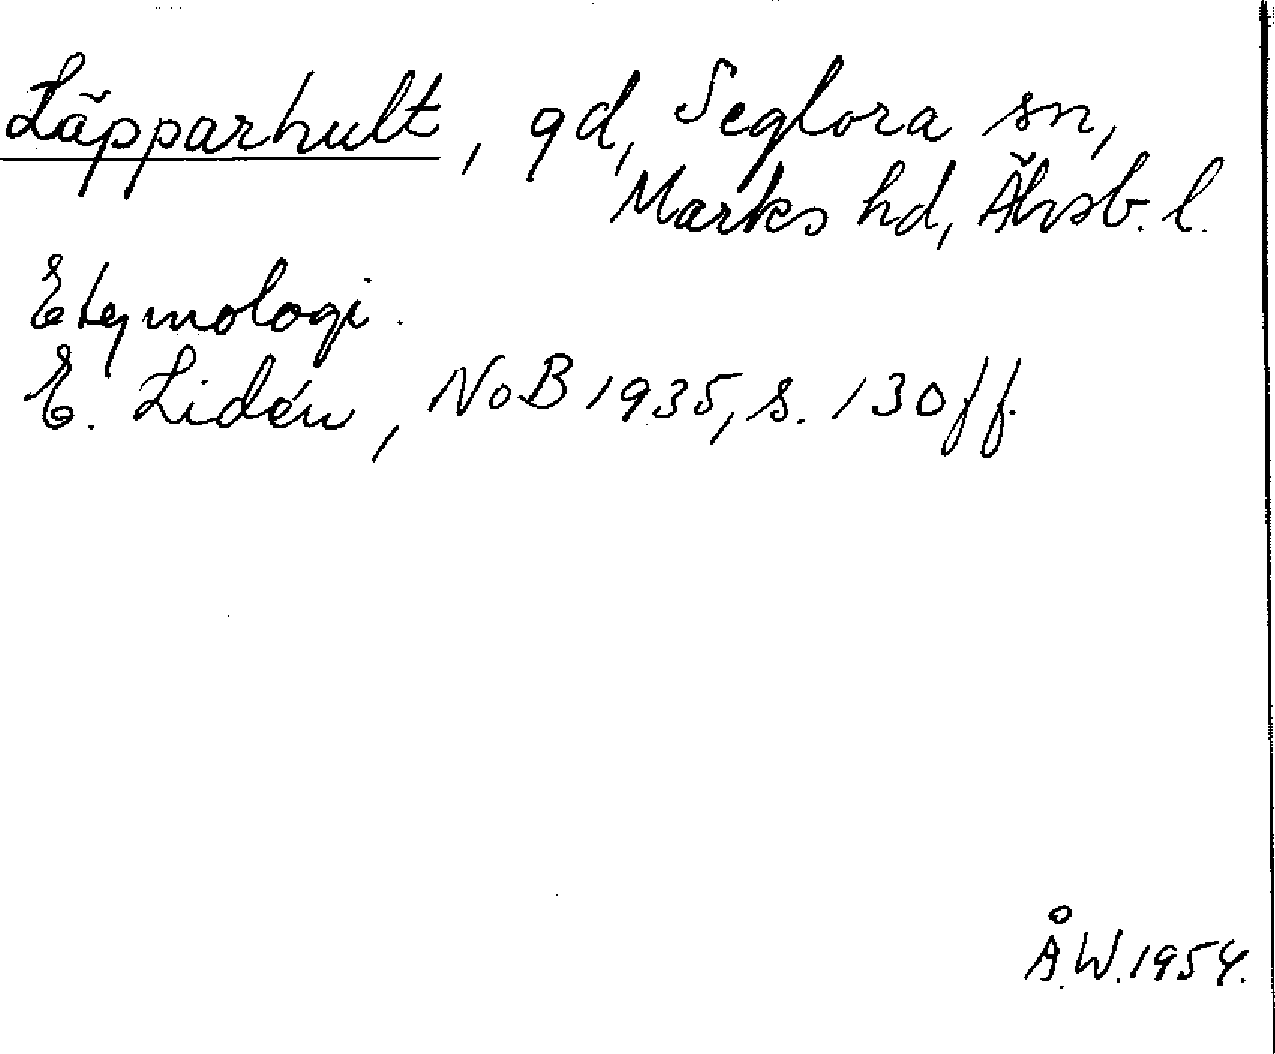 Läpparhult, gd, Seglora sn,
Marks hd, Älvsb. l.
Etymologi.
E. Lidén, NoB 1935, s. 130 ff.
Å.W. 1954.